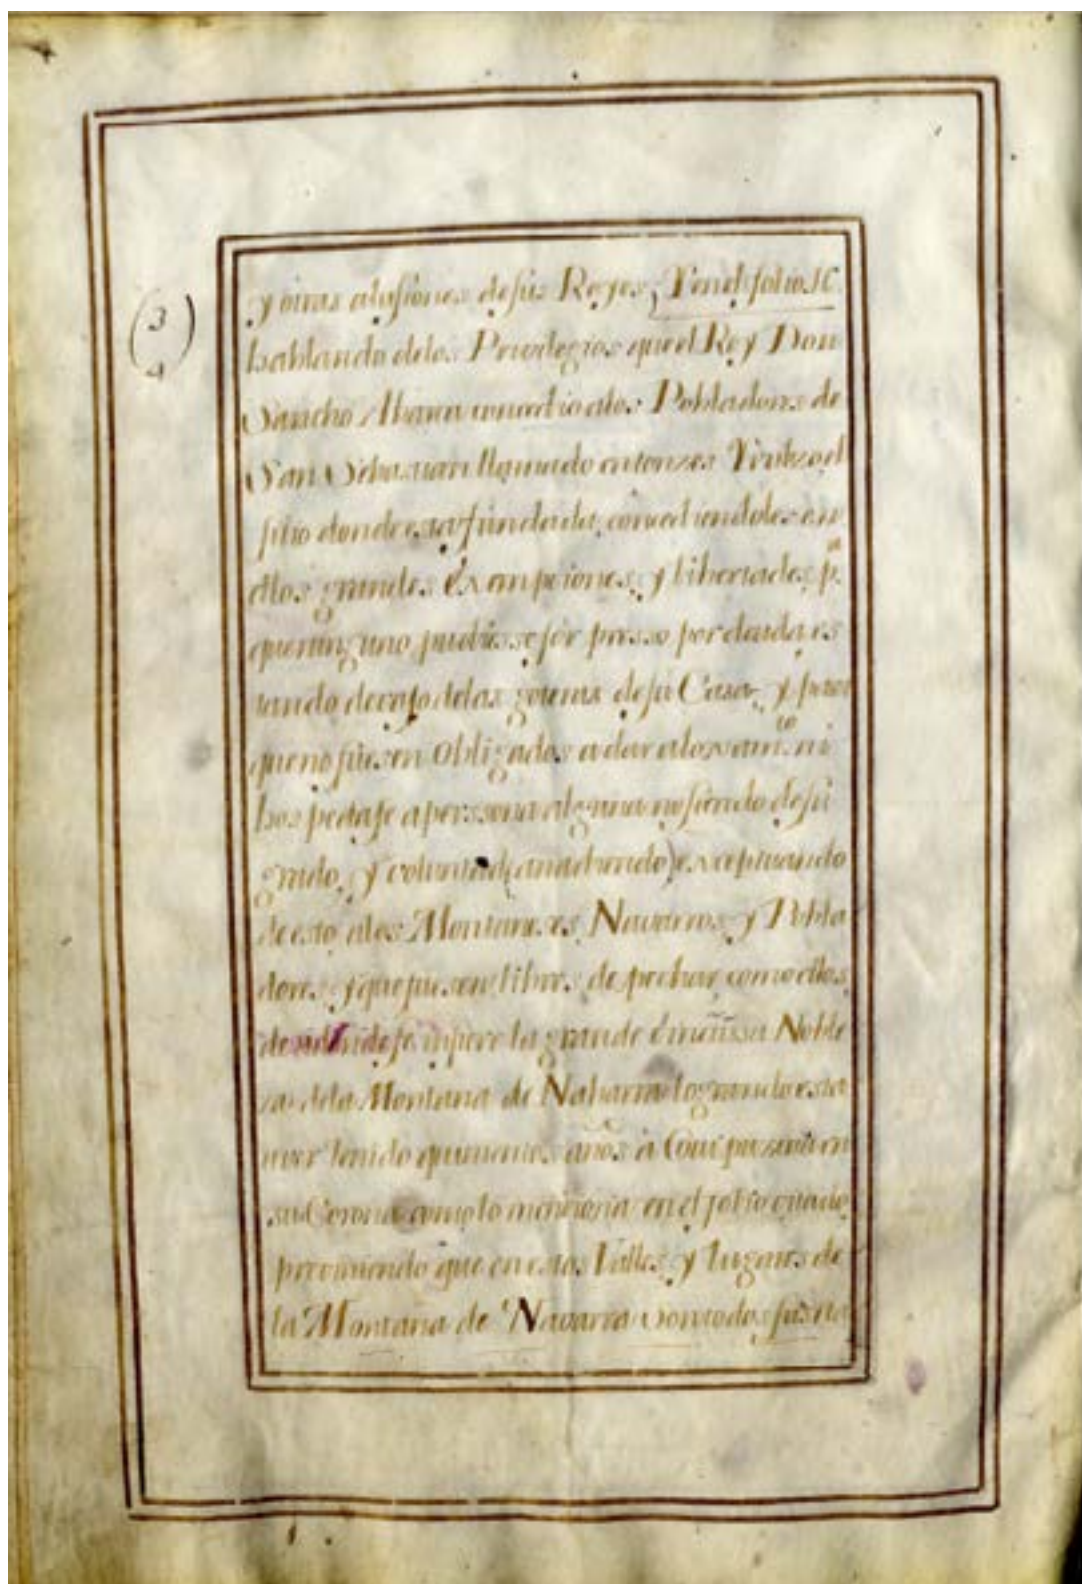 y otras alusiones de sus Reyes, Yen el folio
(3
4)
hablando delos Previlegios que el Rey Don
Sancho Abarca concedio alos Pobladores de
San Sebastian llamado entonzes el
sitio donde esta fundada, concediendoles en
ellos grandes Exampciones, y libertades, p.ª
que ninguno pudiesse ser presso por deuda es
tando devajo delas goteras desu Casa, y para
que no fuesen obligados a dar alojam.to ni
hospedaje a perssona alguna no siendo desu
grado, y voluntad (anadiendo) exceptuando
de esto alos Montañeses Navarros, y Pobla
dores, y que fuesen libres de pechar, como ellos,
de se infiere la grande è inmenssa Noble
za dela Montaña de Nabarra logrando esta
aver tenido quinientos años à
su Corona como lo menciona en el folio
previniendo que en estos Valles, y Lugares de
la Montaña de Navarra son todos sus na